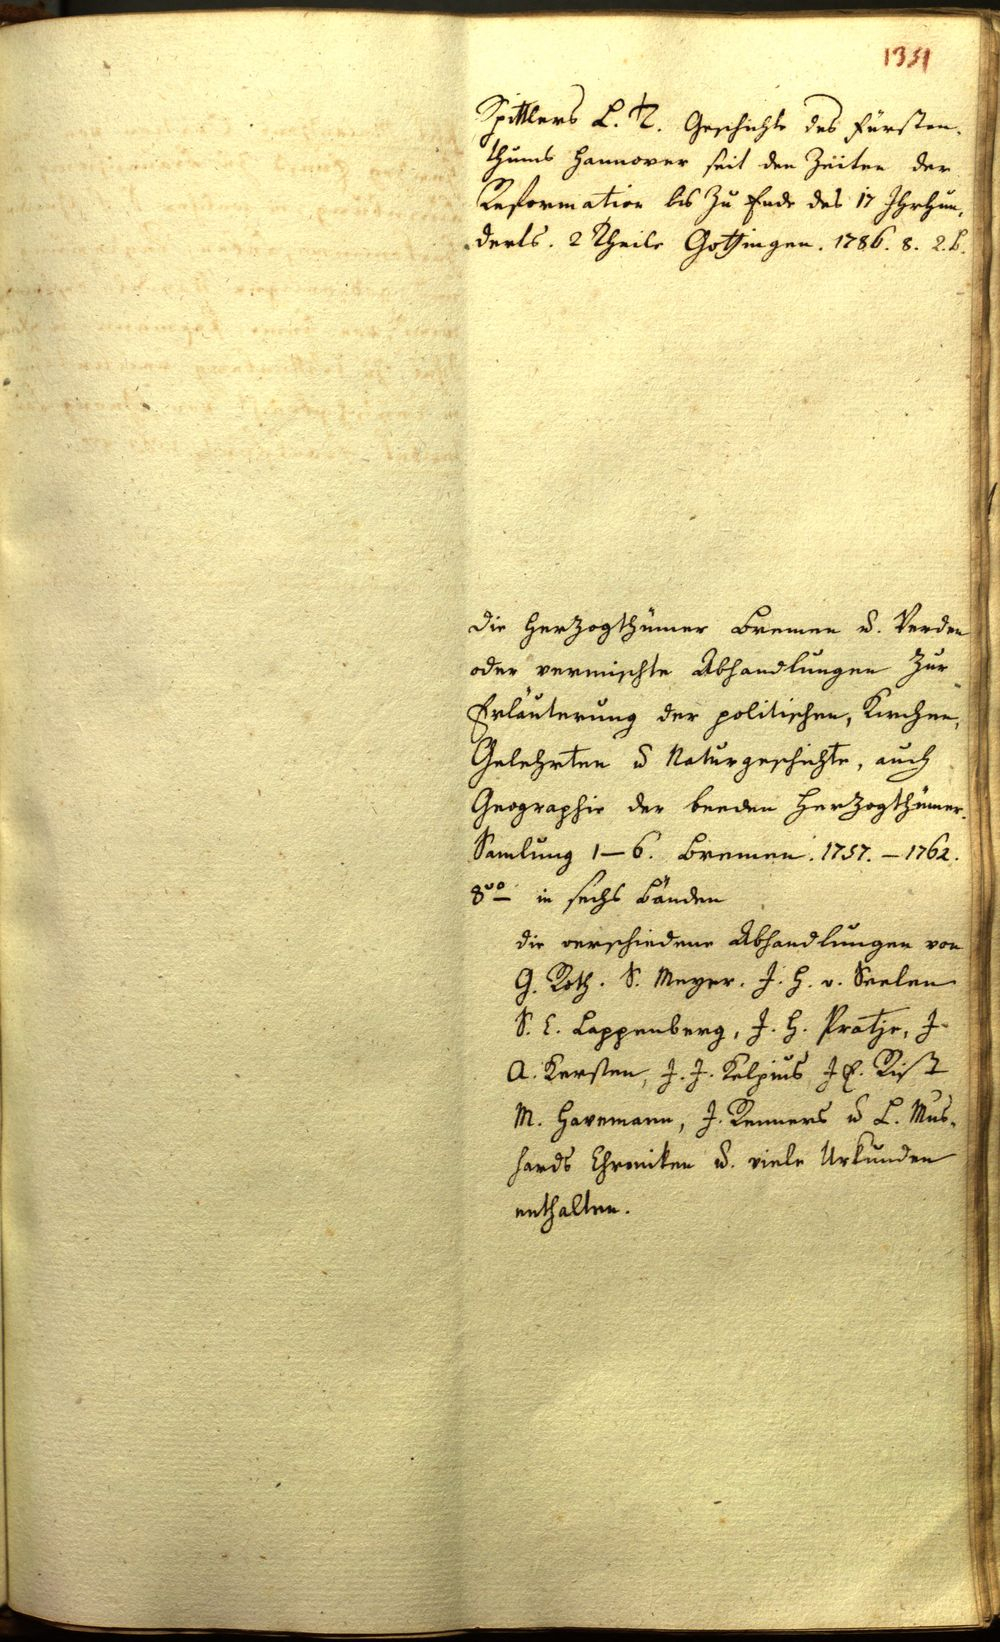 1351
Spittlers L. T. Geschichte des Fürsten-
thums Hannover seit den Zeiten der
Reformation bis zu Ende des 17 Jhrhun-
derts. 2 Theile Gottingen. 1786. 8. 2. b.
Die Herzogthümer Bremen u. Verden
oder vermischte Abhandlungen zur
Erläuterung der politischen, Kirchen,
Gelehrten u Naturgeschichte, auch
Geographie der beeden Herzogthümer.
Samlung 1–6. Bremen. 1757. – 1762.
8vo in sechs Bänden
die verschiedene Abhandlungen von
G. Roth. S. Meyer. J. H. v. Seelen
S. C. Lappenberg, J. H. Pratje, J.
A. Kersten, J. J. Kelpius J E. Rist
M. Havemann, J. Renners u L. Mus-
hards Chroniken u. viele Urkunden
enthalten.